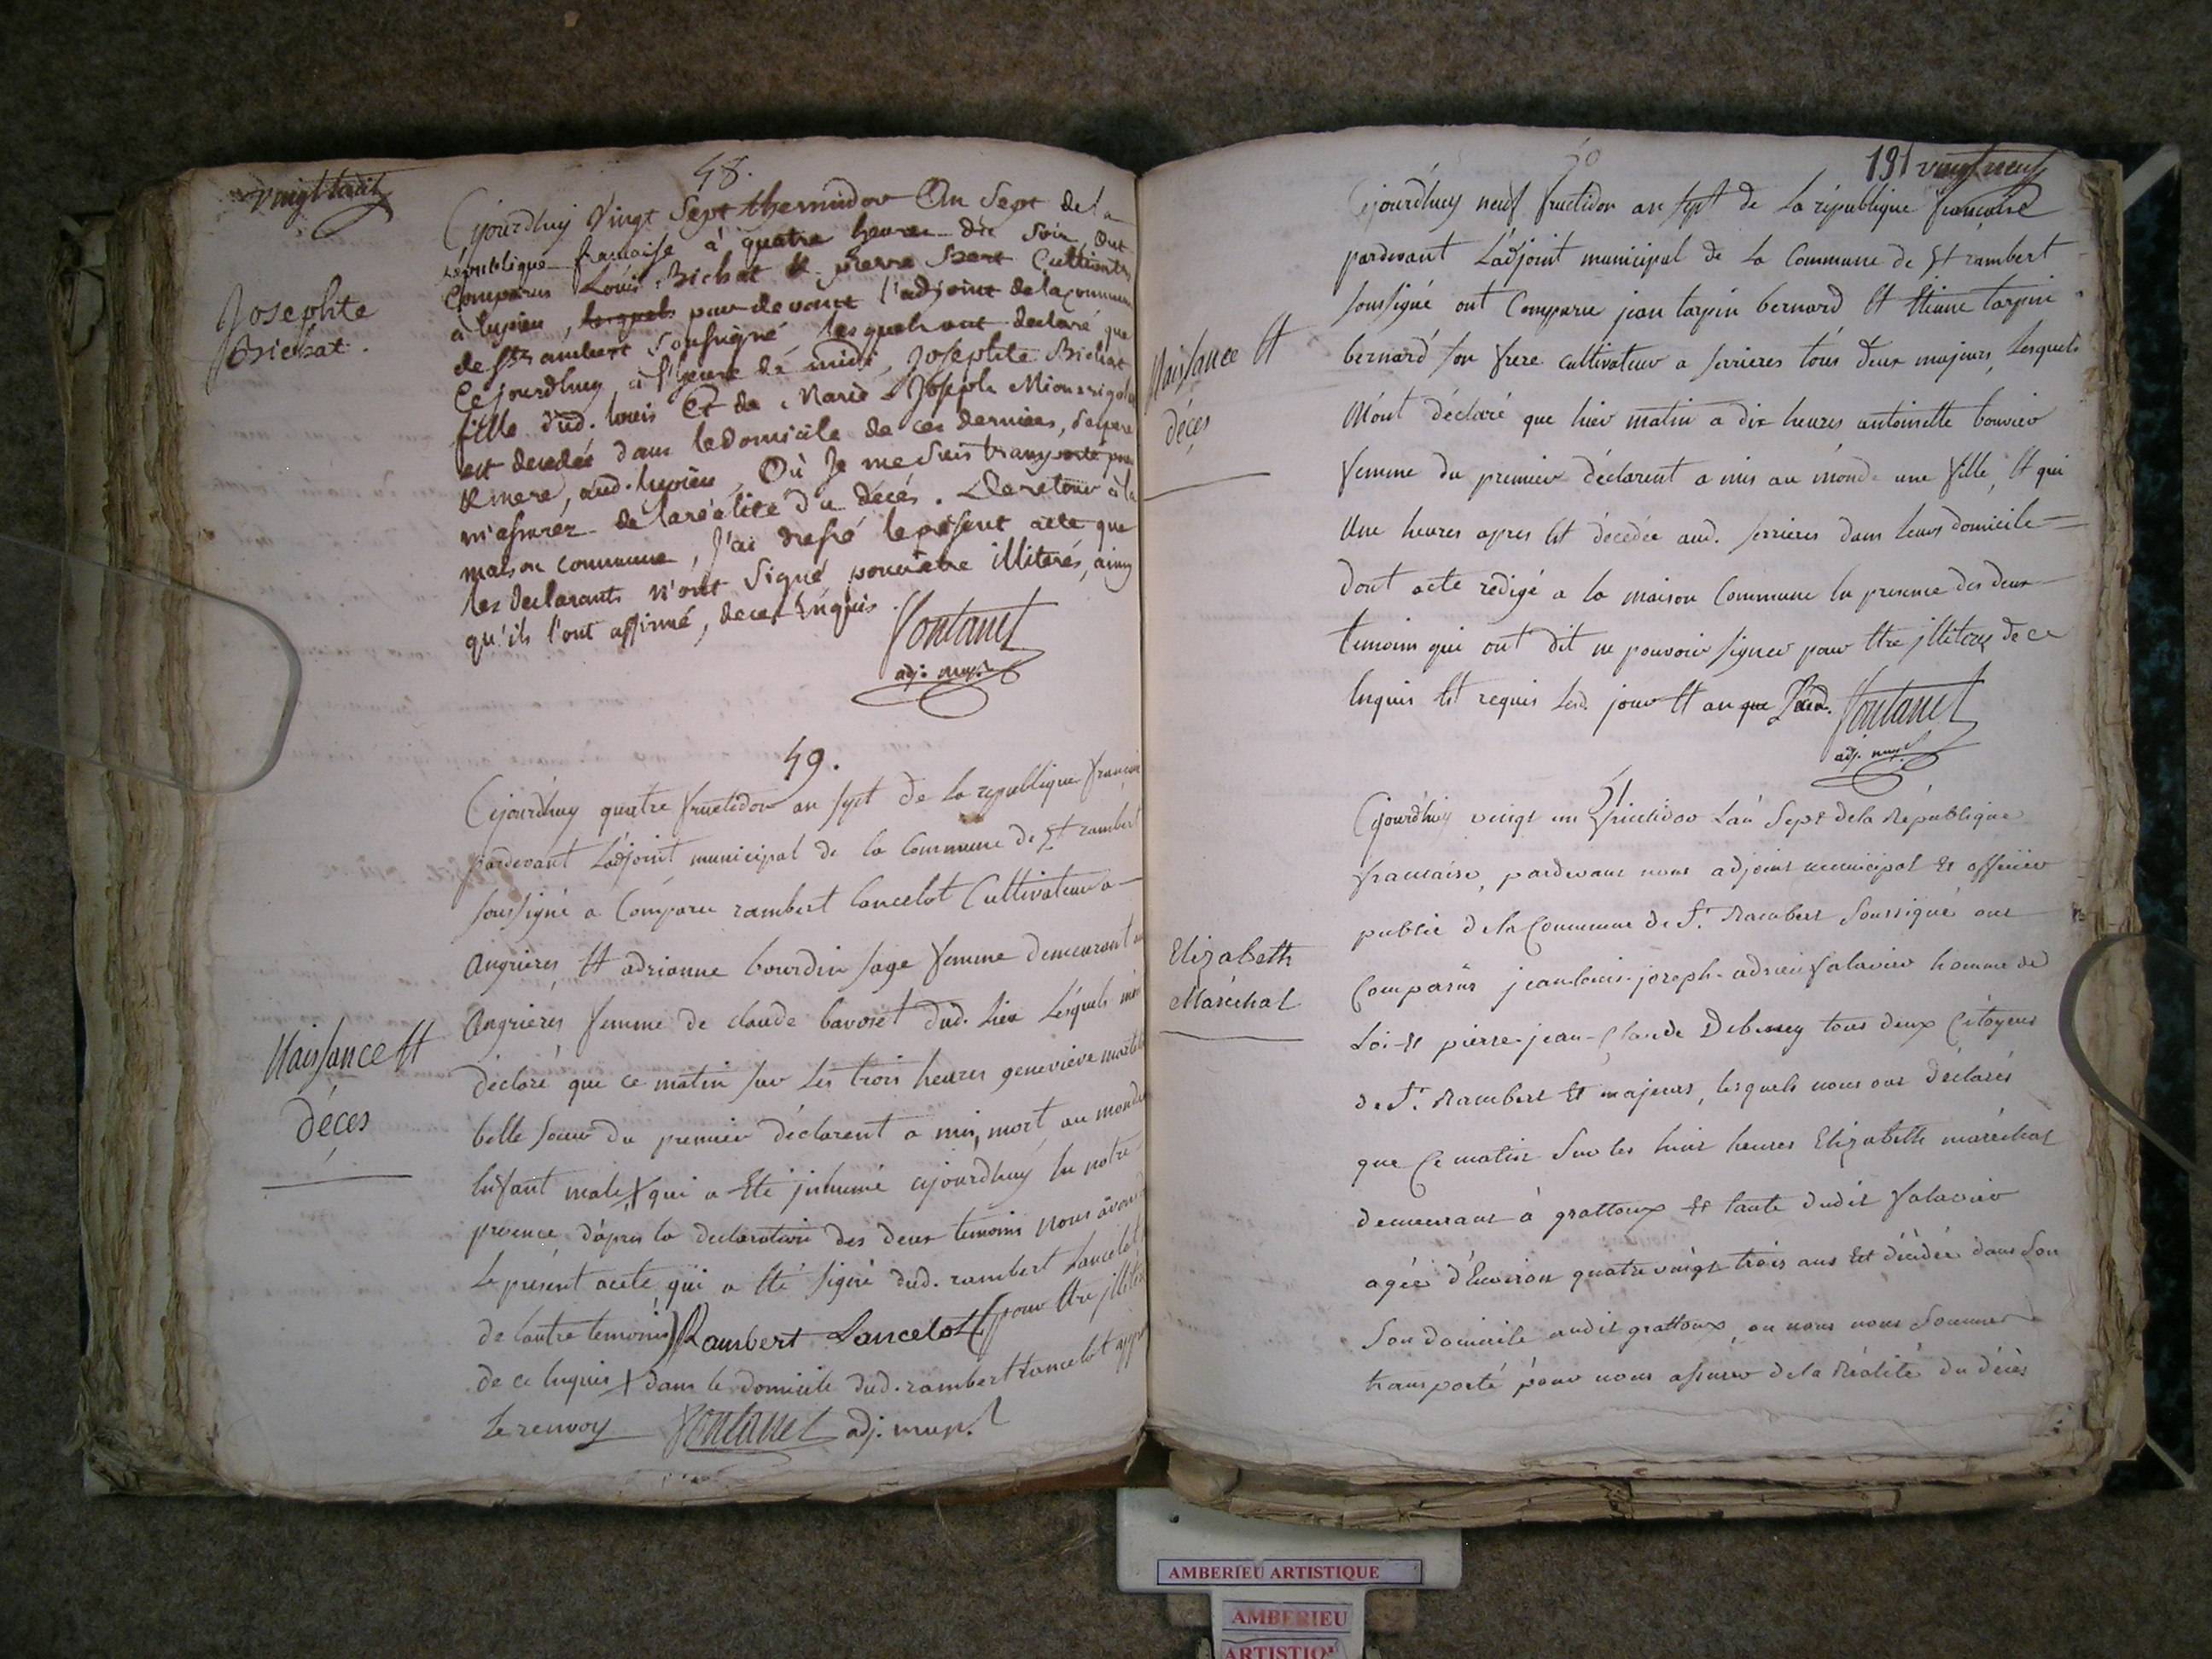 vingt huit
48.
Josephte
Bichat.
Cejourdhuy Vingt Sept thermidor An Sept de la
republique francaise à quatre heures du Soir, Ont
Comparus Louis Bichat & pierre Cultivateurs
à lupieu, lesquels par devant l'adjoint de la commune
de St rambert Soussigné, lesquels ont declaré que
Cejourdhuy à l'heure de midi, Josephte Bichat
fille dud. louis Et de Marie Joseph
est decedée dans le domicile de ces derniers, ses pere
& mere, aud. lupieu, Où Je me suis transporté pour
m'assurer de la réalité du décés. De retour à la
maison commune, J'ai dressé le présent acte que
les declarants n'ont Signé pour être illiterés, ainsy
qu'ils l'ont affirmé, de ce Enquis.
fontanel
adj. mupl
49.
Naissance Et
déces
Cejourdhuy quatre fructidor an sept de la republique francaise
pardevant Ladjoint municipal de la Commune de St rambert
soussigné a Comparu rambert Lancelot Cultivateur a
Angrieres Et adrianne bourdin sage femme demeurant a
Angrieres femme de claude bavoset dud. Lieu Lesquels mont
déclaré que ce matin sur les trois heures genevieve
belle soeur du premier déclarent a mis, mort au monde
Enfant male X qui a Eté jnhumé cejourdhuy En notre
presence d'apres la declaration des deux temoins nous avons
Le present acte qui a Eté signé dud. rambert Lancelot
de lautre temoins) Rambert Lancelot (pour Etre jlliteré
de ce Enquis X dans le domicile dud. rambert Lancelot
Le renvoy fontanel adj. mup.l
191 vingt neuf
50
Naissance Et
déces
Cejourdhuy neuf fructidor an sept de La république francaise
pardevant Ladjoint municipal de La Commune de St rambert
soussigné ont Comparu jean tarpin bernard Et Etienne tarpin
bernard son frere cultivateur a serrieres tous deux majeurs, Lesquels
M'ont déclaré que hier matin a dix heures antoinette bouvier
femme du premier déclarent a mis au monde une fille, Et qui
Une heures apres Est décédée aud. serrieres dans leurs domicile
Dont acte redigé a la maison Commune En presence des deux
temoins qui ont dit ne pouvoir signer pour Etre jlliterés de ce
Enquis Et requis Lesd. jour Et an que
fontanel
adj. mupl
51
Elizabeth
Maréchal
Cejourd'hui vingt un fructidor L'an Sept de la République
francaise, pardevant nous adjoint municipal Et officier
public de la Commune de St. Rambert Soussigné ont
Comparûs jean louis joseph adrien falavier homme de
Loi Et pierre jean-Claude Debeney tous deux Citoyens
de St. Rambert Et majeurs, lesquels nous ont déclarés
que Ce matin Sur les huit heures Elizabeth maréchal
demeurant à grattoux Et tante dudit falavier
agée d'Environ quatre vingt trois ans Est décédée dans Son
Son domicile audit grattoux, ou nous nous Sommes
transporté pour nous assurer de la Réalité du décès
AMBERIEU ARTISTIQUE
AMBERIEU
ARTISTIQU